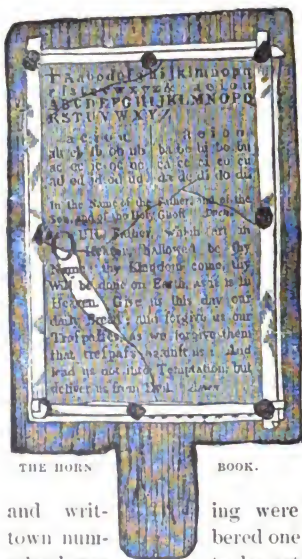 Aabcdefghijklmnopq
rſstuvwxyz& aeiou
ABCDEFGHIJKLMNOPQ
RSTUVWXYZ
a e i o u a e i o u
ab eb ib ob ub ba be bi bo bu
ac ec ic oc uc ca ce ci co cu
ad ed id od ud da de di do du
In the Name of the Father, and of the
Son, and of the Holy Ghoſt. Amen.
Father, which art in
Heaven, hallowed be thy
Name, thy Kingdom come, thy
Will be done on Earth, as it is in
Heaven. Give us this day our
daily Bread, and forgive us our
Treſpaſſes, as we forgive them
that treſpaſs againſt us. And
lead us not into Temptation, but
deliver us from Evil. Amen
THE HORN BOOK.
and writ- ing were
town num- bered one